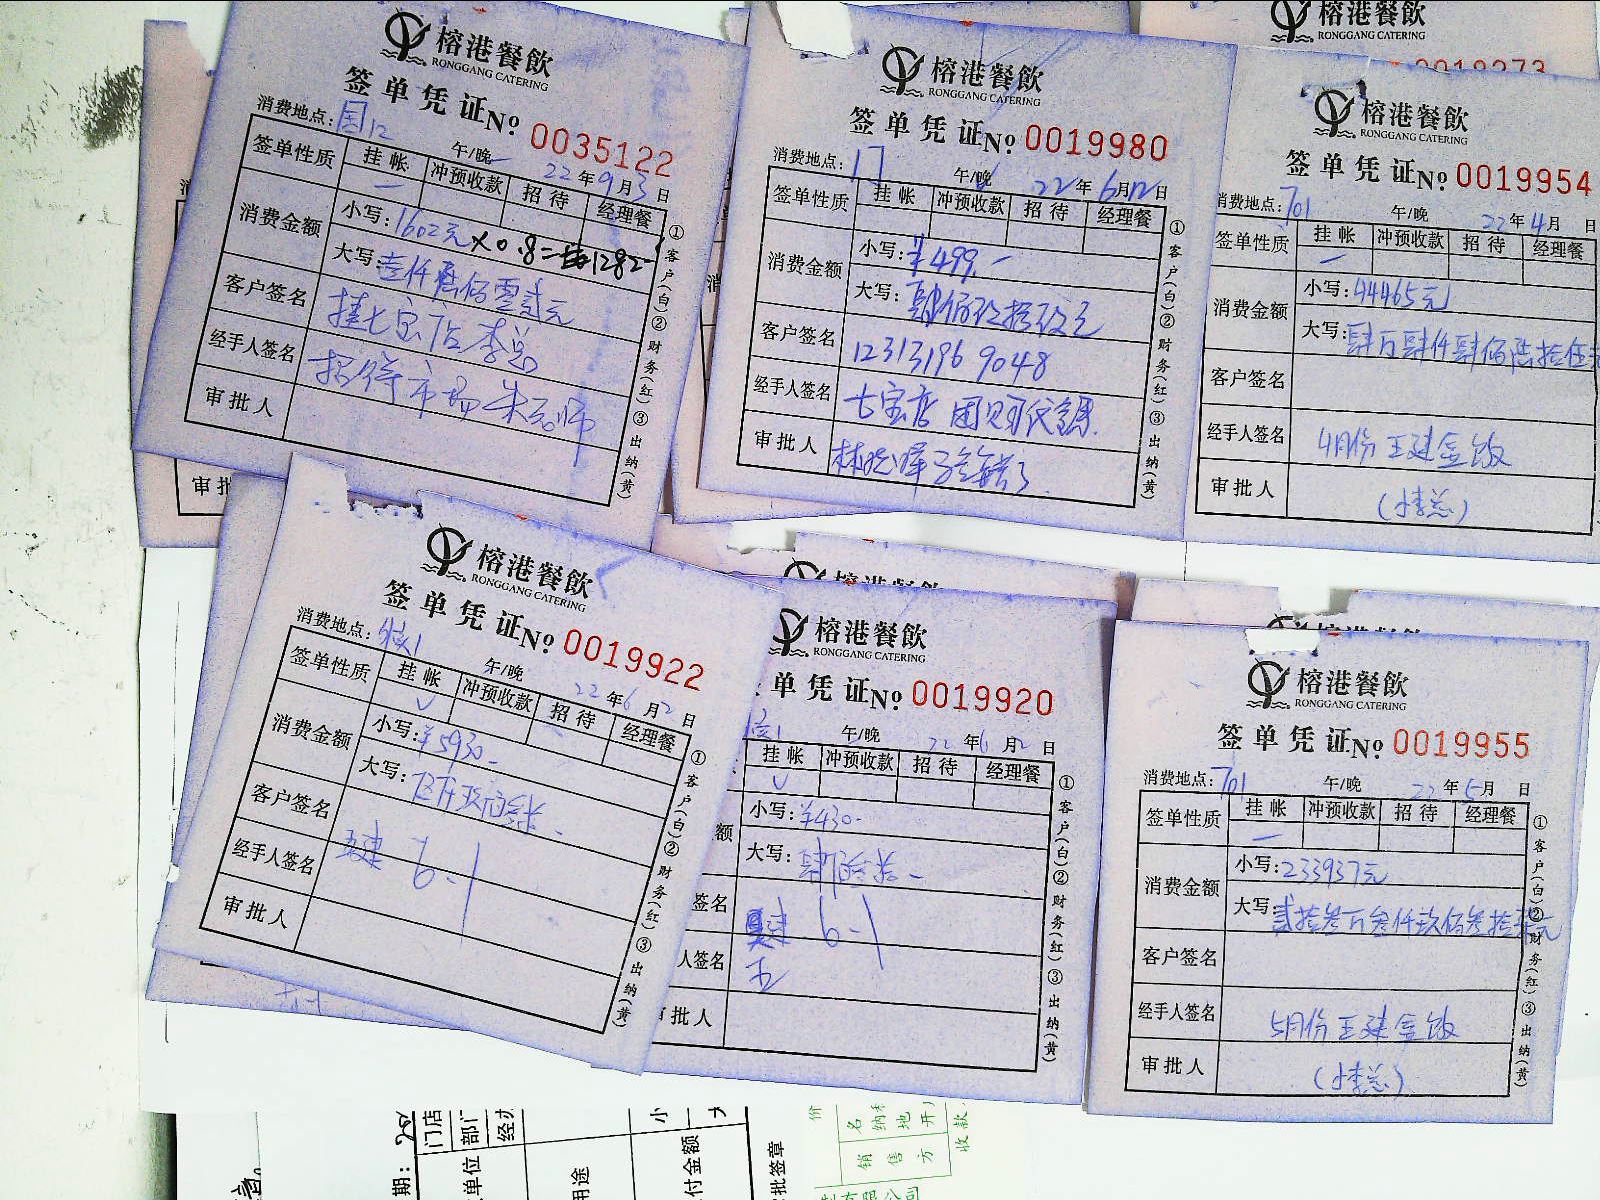 榕港餐飲
RONGGANG CATERING
签单凭证No 0035122
消费地点: 国12 午/晚 22年9月3日
签单性质 挂帐 冲预收款 招待 经理餐
消费金额 小写: 1602元×0.8=1282
大写: 壹仟陆佰零贰元
客户签名 挂七宝店李总
经手人签名 招待市场朱
审批人
①客户(白)②财务(红)③出纳(黄)
榕港餐飲
RONGGANG CATERING
签单凭证No 0019980
消费地点: 17 午/晚 22年6月12日
签单性质 挂帐 冲预收款 招待 经理餐
消费金额 小写: ¥499.-
大写: 肆佰玖拾玖元
客户签名 12313196 9048
经手人签名 七宝店 团
审批人 林
①客户(白)②财务(红)③出纳(黄)
榕港餐飲
RONGGANG CATERING
0019273
榕港餐飲
RONGGANG CATERING
签单凭证No 0019954
消费地点: 701 午/晚 22年4月 日
签单性质 挂帐 冲预收款 招待 经理餐
消费金额 小写: 44465元
大写: 肆万肆仟肆佰陆拾伍
客户签名
经手人签名 4月份王建金饭
审批人 (小李总)
审批
榕港餐飲
RONGGANG CATERING
签单凭证No 0019922
消费地点: 午/晚 22年6月2日
签单性质 挂帐 冲预收款 招待 经理餐
消费金额 小写: ¥5930-
大写:
客户签名
经手人签名 6-1
审批人
①客户(白)②财务(红)③出纳(黄)
榕港餐飲
RONGGANG CATERING
单凭证No 0019920
午/晚 22年6月2日
挂帐 冲预收款 招待 经理餐
额 小写: ¥430-
大写: 肆佰叁拾-
签名 6-1
人签名 王
批人
①客户(白)②财务(红)③出纳(黄)
榕港餐飲
RONGGANG CATERING
签单凭证No 0019955
消费地点: 701 午/晚 22年5月 日
签单性质 挂帐 冲预收款 招待 经理餐
消费金额 小写: 233937元
大写: 贰拾叁万叁仟玖佰叁拾柒元
客户签名
经手人签名 5月份王建金饭
审批人 (小李总)
①客户(白)②财务(红)③出纳(黄)
期:
门店
部门
经办
单位
用途
小
付金额
大
批签章
价
名
纳
地
开
销售方
收款
制有限公司